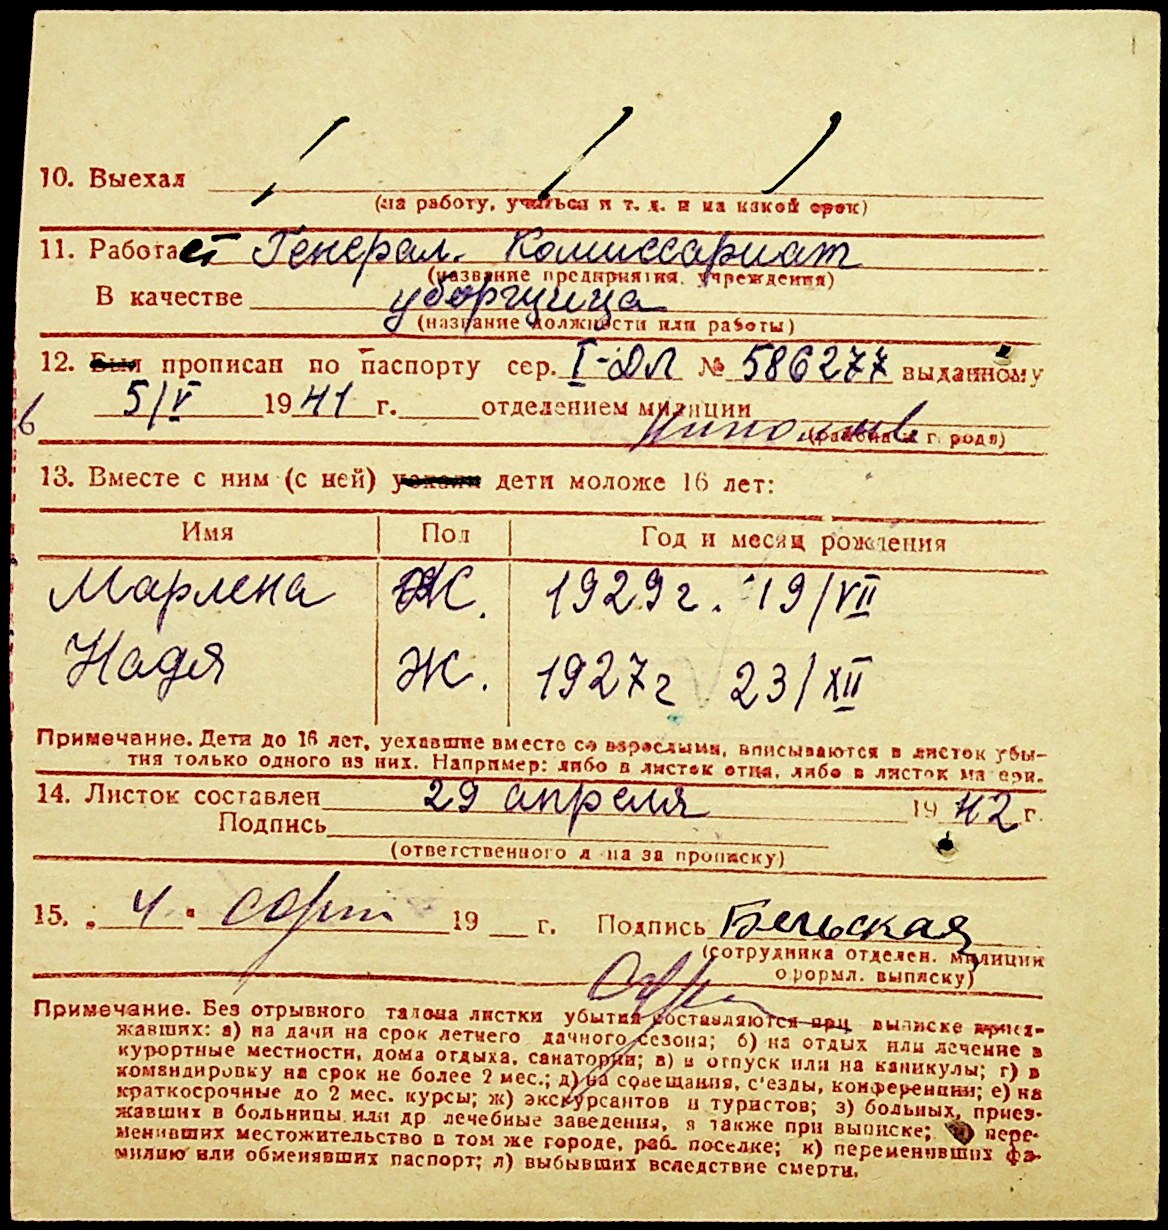 10. Выехал
(на работу, учиться и т. д. и на какой срок)
11. Работает Генерал. Комиссариат
(название предприятия, учреждения)
В качестве уборщица
(название должности или работы)
12. Был прописан по паспорту сер. I-ДЛ № 586277 выданному
5/V 1941 г. отделением милиции
в
(района и города)
13. Вместе с ним (с ней) уехали дети моложе 16 лет:
Имя Пол Год и месяц рождения
Марлена Ж. 1929 г. 19/VII
Надя Ж. 1927 г 23/XII
Примечание. Дети до 16 лет, уехавшие вместе со взрослыми, вписываются в листок убы-
тия только одного из них. Например: либо в листок отца, либо в листок матери.
14. Листок составлен 29 апреля 1942 г.
Подпись
(ответственного л на за прописку)
15. „ 4 " 19 г. Подпись Бельская
(сотрудника отделен. милиции
оформл. выписку)
Примечание. Без отрывного талона листки убытия составляются при выписке приез-
жавших: а) на дачи на срок летнего дачного сезона; б) на отдых или лечение в
курортные местности, дома отдыха, санатории; в) в отпуск или на каникулы; г) в
командировку на срок не более 2 мес.; д) на совещания, с'езды, конференции; е) на
краткосрочные до 2 мес. курсы; ж) экскурсантов и туристов; з) больных, приез-
жавших в больницы или др лечебные заведения, а также при выписке; и) пере-
менивших местожительство в том же городе, раб. поселке; к) переменивших фа-
милию или обменявших паспорт; л) выбывших вследствие смерти.